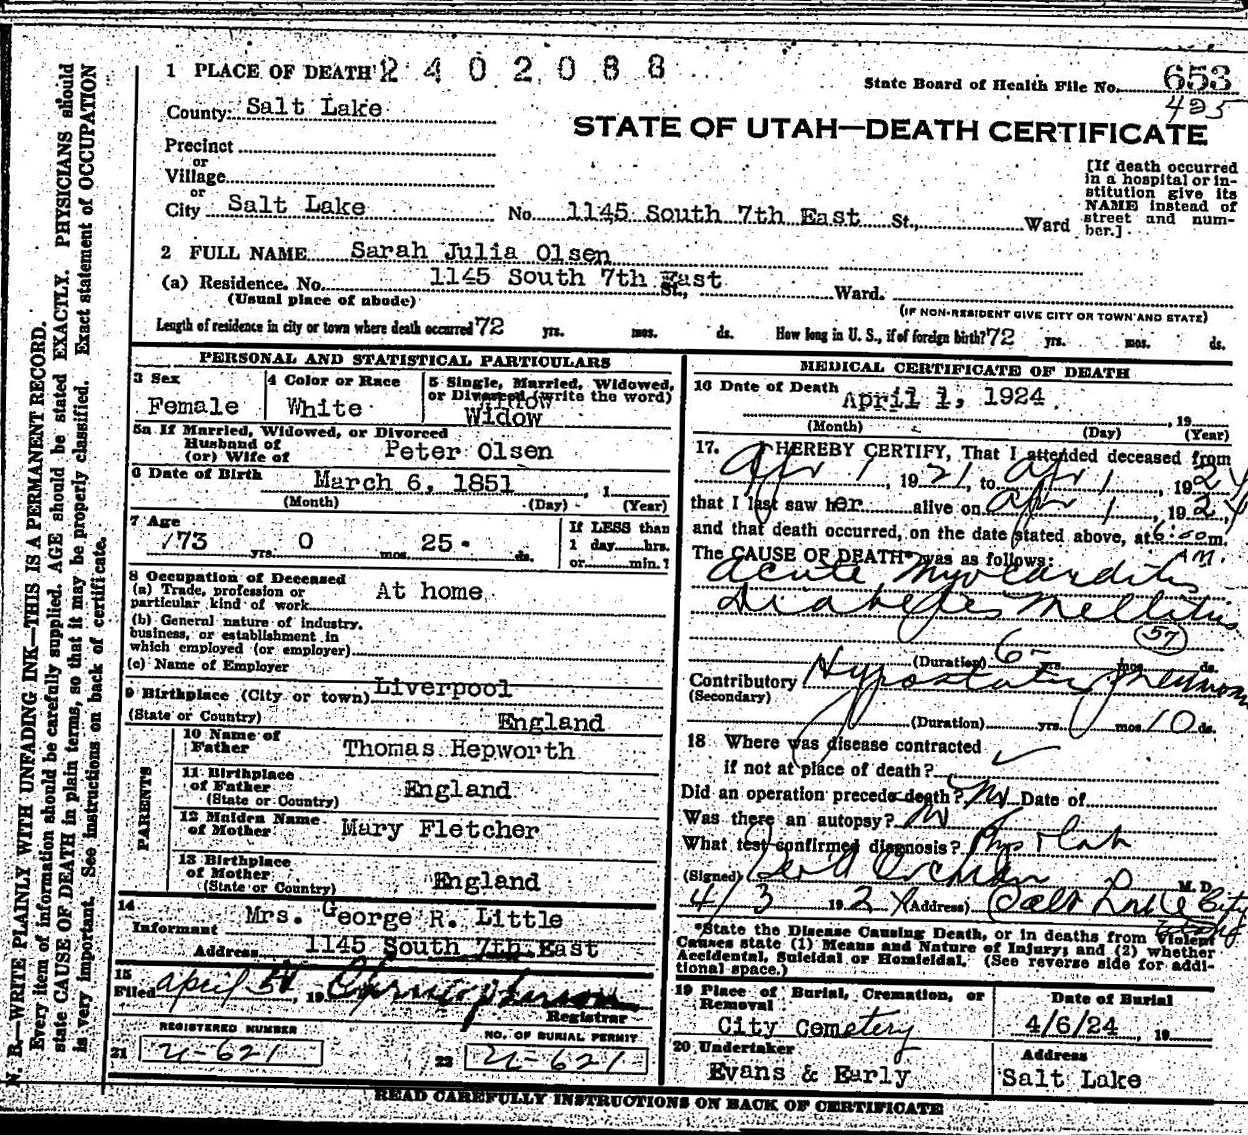 N. B.—WRITE PLAINLY WITH UNFADING INK—THIS IS A PERMANENT RECORD.
Every item of information should be carefully supplied. AGE should be stated EXACTLY. PHYSICIANS should
state CAUSE OF DEATH in plain terms, so that it may be properly classified. Exact statement of OCCUPATION
is very important. See instructions on back of certificate.
1 PLACE OF DEATH 2402088
State Board of Health File No. 653
425
County: Salt Lake
STATE OF UTAH—DEATH CERTIFICATE
Precinct
or
Village
or
City Salt Lake No. 1145 South 7th East St., Ward
[If death occurred
in a hospital or in-
stitution give its
NAME instead of
street and num-
ber.]
2 FULL NAME Sarah Julia Olsen
(a) Residence. No. 1145 South 7th East St., Ward.
(Usual place of abode)
(IF NON-RESIDENT GIVE CITY OR TOWN AND STATE)
Length of residence in city or town where death occurred 72 yrs. mos. ds. How long in U. S., if of foreign birth? 72 yrs. mos. ds.
PERSONAL AND STATISTICAL PARTICULARS
3 Sex
Female
4 Color or Race
White
5 Single, Married, Widowed,
or Divorced (write the word)
Widow
5a If Married, Widowed, or Divorced
Husband of
(or) Wife of Peter Olsen
6 Date of Birth March 6, 1851, 1
(Month) (Day) (Year)
7 Age
73 yrs. 0 mos. 25 ds.
If LESS than
1 day hrs.
or min.?
8 Occupation of Deceased
(a) Trade, profession or
particular kind of work At home
(b) General nature of industry,
business, or establishment in
which employed (or employer)
(c) Name of Employer
9 Birthplace (City or town) Liverpool
(State or Country) England
PARENTS
10 Name of
Father Thomas Hepworth
11 Birthplace
of Father England
(State or Country)
12 Maiden Name
of Mother Mary Fletcher
13 Birthplace
of Mother
(State or Country) England
14
Informant Mrs. George R. Little
Address 1145 South 7th East
15
Filed April , 19
Registrar
REGISTERED NUMBER
21 U-621
NO. OF BURIAL PERMIT
22 U-621
MEDICAL CERTIFICATE OF DEATH
16 Date of Death April 1, 1924
, 19
(Month) (Day) (Year)
17. I HEREBY CERTIFY, That I attended deceased from
Apr 1, 1921, to Apr 1, 1924
that I last saw her alive on Apr 1, 1924,
and that death occurred, on the date stated above, at 6:00 m.
AM.
The CAUSE OF DEATH* was as follows:
Acute Myocarditis
Diabetes Mellitus
57
(Duration) 6 yrs. mos. ds.
Contributory Hypostatic Pneumonia
(Secondary)
(Duration) yrs. mos 10 ds.
18 Where was disease contracted
if not at place of death?
Did an operation precede death? No Date of
Was there an autopsy? No
What test confirmed diagnosis? Phys & Lab
(Signed) M. D.
4/3 1924 (Address) Salt Lake City
*State the Disease Causing Death, or in deaths from Violent
Causes state (1) Means and Nature of Injury; and (2) whether
Accidental, Suicidal or Homicidal. (See reverse side for addi-
tional space.)
19 Place of Burial, Cremation, or
Removal
City Cemetery
Date of Burial
4/6/24, 19
20 Undertaker
Evans & Early
Address
Salt Lake
READ CAREFULLY INSTRUCTIONS ON BACK OF CERTIFICATE